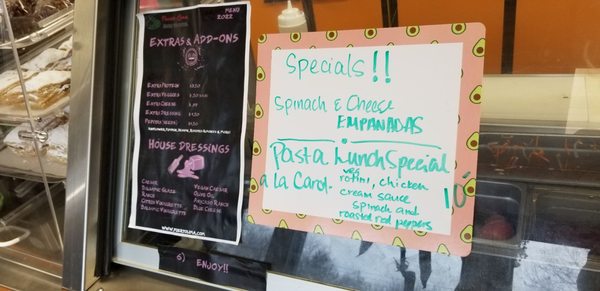 MENU
2022
EXTRAS & ADD-ONS
EXTRA PROTEIN
EXTRA VEGGIES
EXTRA CHEESE
EXTRA DRESSING
HOUSE DRESSINGS
CAESAR
BALSAMIC GLAZE
RANCH
CITRUS VINAIGRETTE
BALSAMIC VINAIGRETTE
VEGAN CAESAR
OLIVE OIL
AVOCADO RANCH
BLUE CHEESE
6) ENJOY!!
Specials!!
Spinach & Cheese
EMPANADAS
Pasta Lunch Special
a la Carol.
veg
rotini, chicken
cream sauce
spinach and
roasted red peppers
10